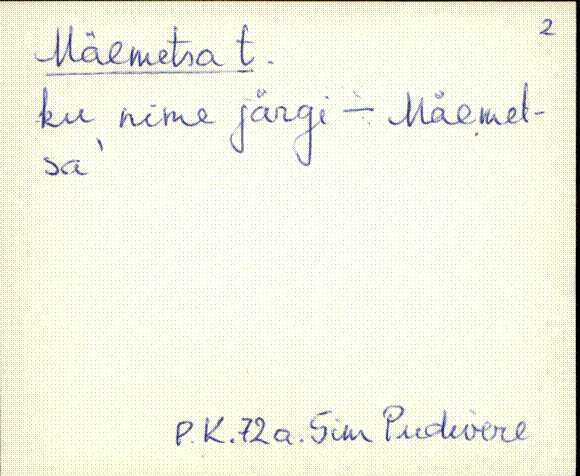 2
Mäemetsa t.
ku nime järgi ÷ Mäemet-
sa'
P.K. 72 a. Sim Pudivere